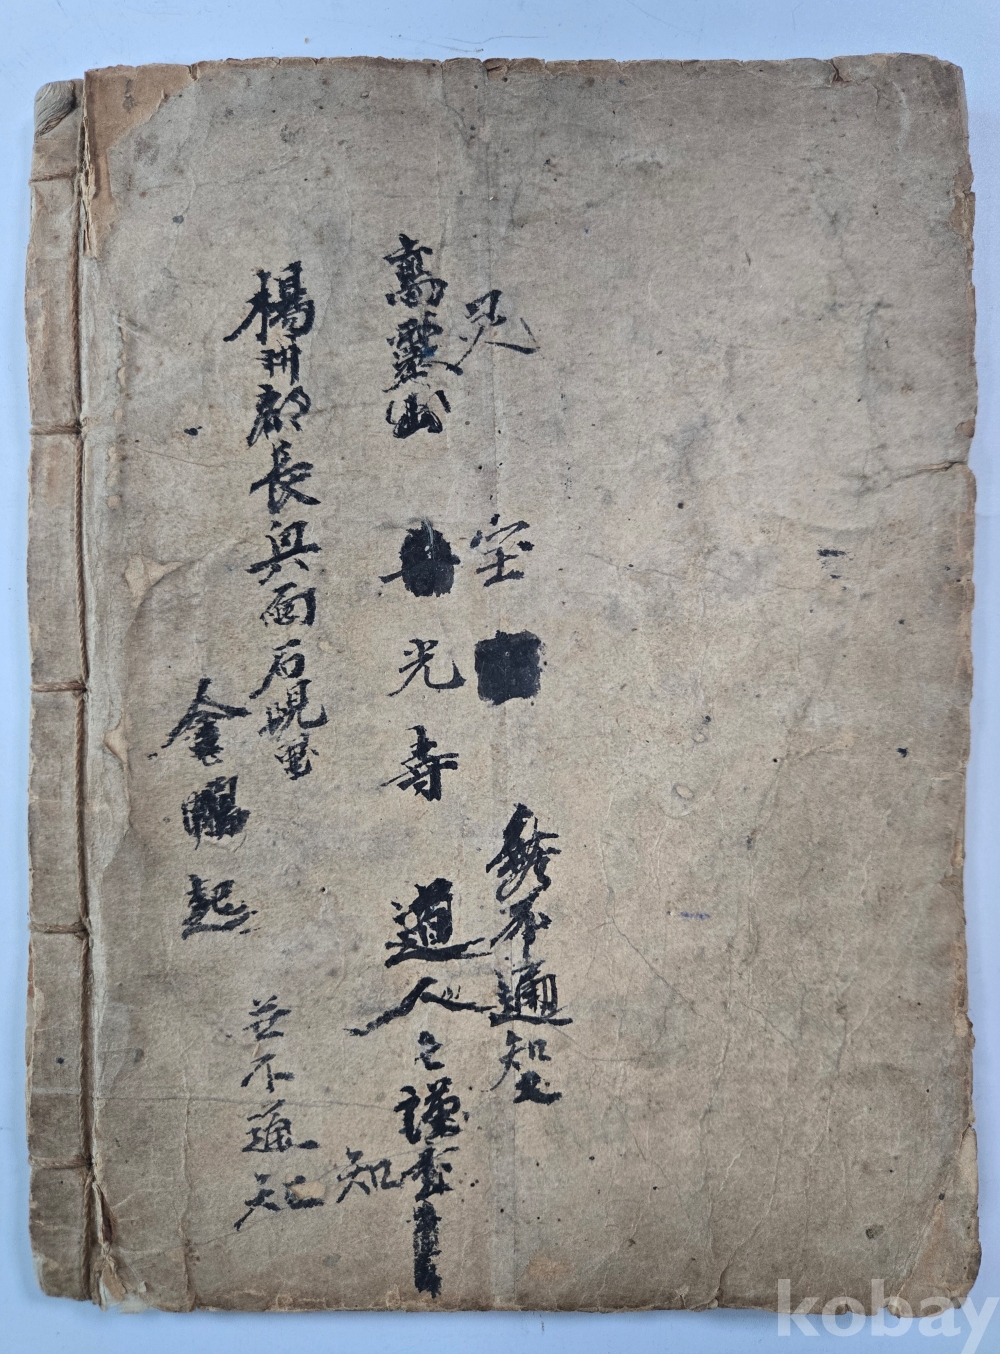 見
空
不通知
高靈山
光寿
道人
謹書
知
楊州郡長興面石峴里
金
起
並不通知
kobay